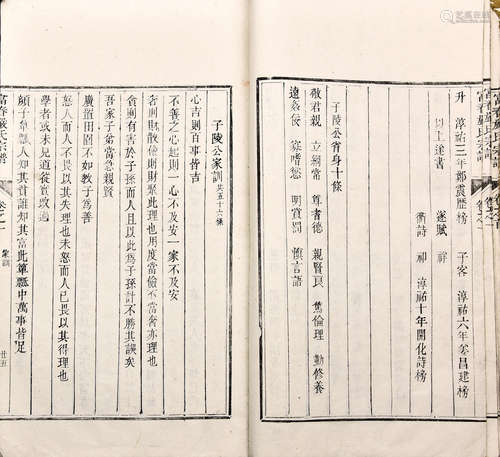 升 淳祐三年鄭震歷榜 子客 淳祐六年 昌建榜
以上遂書 遂賦 祥
衢詩 禆 淳祐十年開化詩榜
子陵公省身十條
敬君親 立綱常 尊耆德 親賢良 篤倫理 勤修養
遠姦佞 寡嗜慾 明賞罰 慎言語
富春嚴氏宗譜
卷之一
子陵公家訓 共五十六條
心吉則百事皆吉
不善之心起則一心不及安一家不及安
奢則財散儉則財聚此理也用度當儉不當奢亦理也
貪則有吉於子孫而人且以此為子孫計不勝其誤矣
吾家子弟當急親賢
廣置田園不如教子為善
怒人而人不畏以其失理也未怒而人已畏以其得理也
學者或未見道從實改過
顏子簞瓢人知其貧誰知其富此簞瓢中萬事皆足
富春嚴氏宗譜
卷之一
家訓
廿五